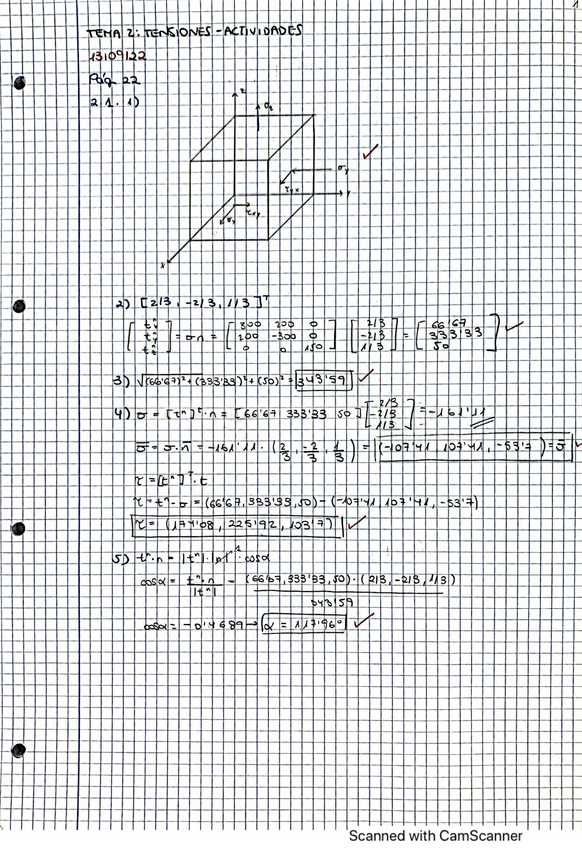 1
TEMA 2: TENSIONES - ACTIVIDADES
13/09/22
Pág. 22
2.1. 1)
z
σz
σy
τyx
y
τxy
σx
x
2) [2/3, -2/3, 1/3]ᵀ
[tⁿx tⁿy tⁿz] = σ·n = [300 200 0; 200 -300 0; 0 0 150] [2/3; -2/3; 1/3] = [66'67; 333'33; 50]
3) √(66'67)²+(333'33)²+(50)² = 343'59
4) σ = [tⁿ]ᵗ·n = [66'67 333'33 50] [2/3; -2/3; 1/3] = -161'11
σ̄ = σ·n̄ = -161'11 · (2/3, -2/3, 1/3) = (-107'41, 107'41, -53'7) = σ̄
τ = [tⁿ]ᵀ·t
τ = tⁿ - σ = (66'67, 333'33, 50) - (-107'41, 107'41, -53'7)
τ = (174'08, 225'92, 103'7)
5) tⁿ·n = |tⁿ|·|n|¹·cosα
cosα = tⁿ·n / |tⁿ| = (66'67, 333'33, 50)·(2/3, -2/3, 1/3) / 343'59
cosα = -0'4689 → α = 117'96º
Scanned with CamScanner